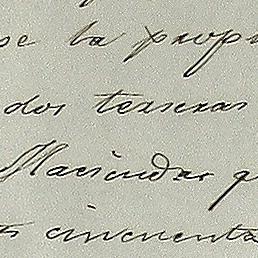 se la prop
dos terseras
Haciendas q
cincuenta